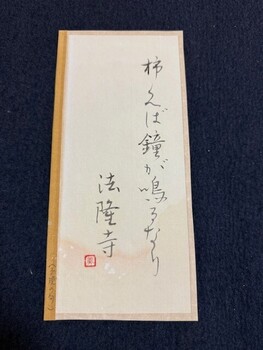 柿くえば鐘が鳴るなり
法隆寺